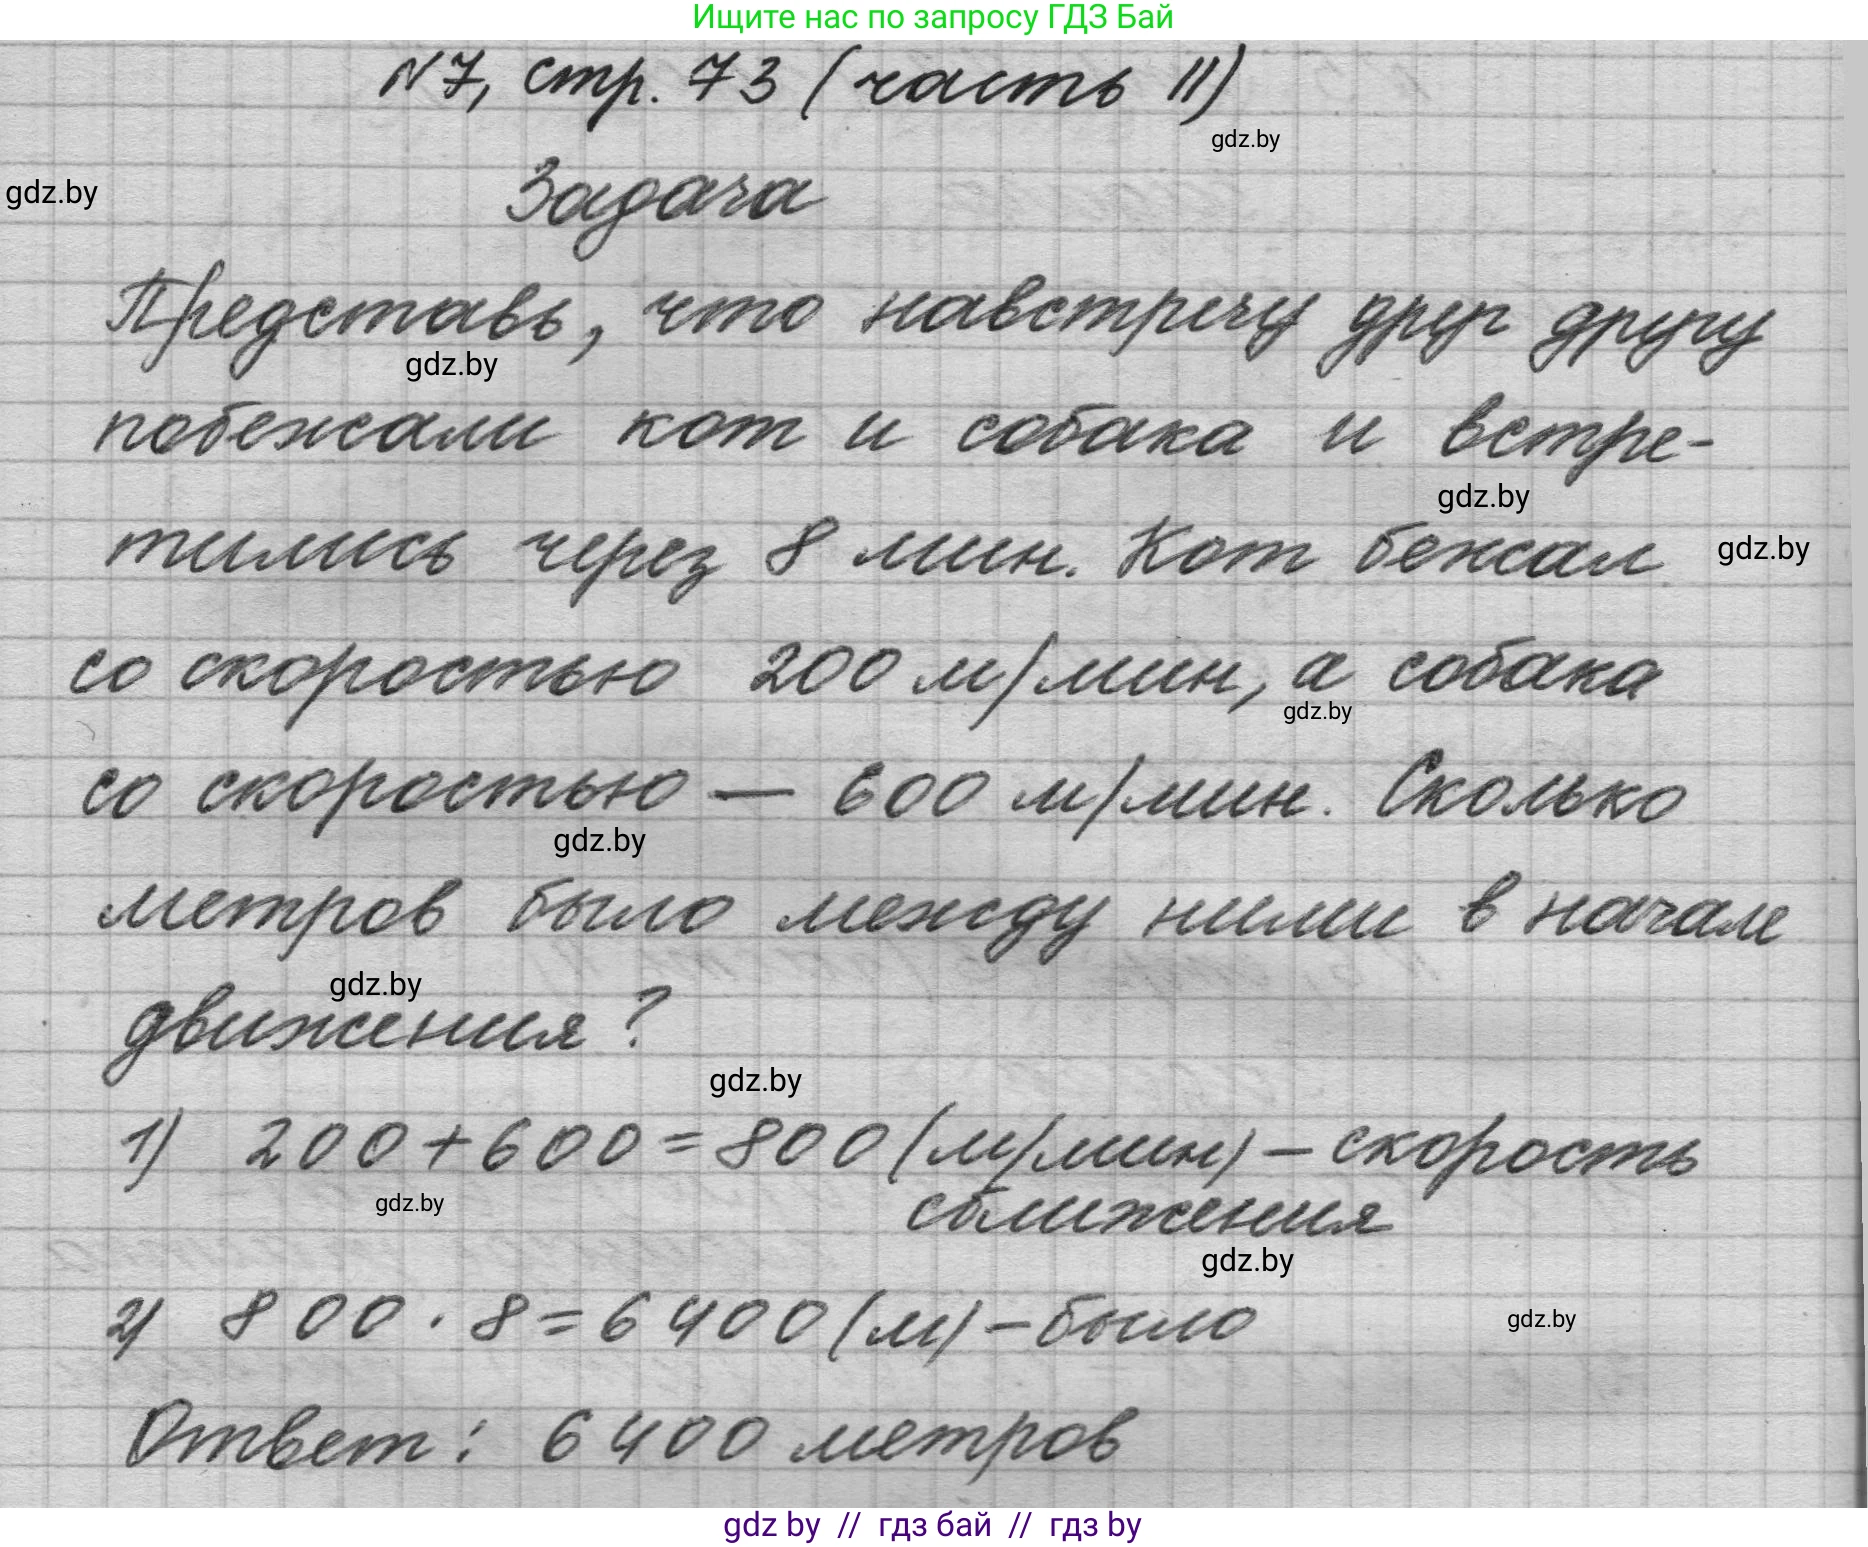 Ищите нас по запросу ГДЗ Бай
N7, стр. 73 (часть II)
gdz.by
gdz.by
Задача
Представь, что навстречу друг другу
gdz.by
побежали кот и собака и встре-
gdz.by
тились через 8 мин. Кот бежал
gdz.by
со скоростью 200 м/мин, а собака
gdz.by
со скоростью — 600 м/мин. Сколько
gdz.by
метров было между ними в начале
gdz.by
движения?
gdz.by
1) 200+600=800 (м/мин) – скорость
gdz.by
сближения
gdz.by
2) 800 · 8=6400 (м) – было
gdz.by
Ответ: 6400 метров
gdz by // гдз бай // гдз by